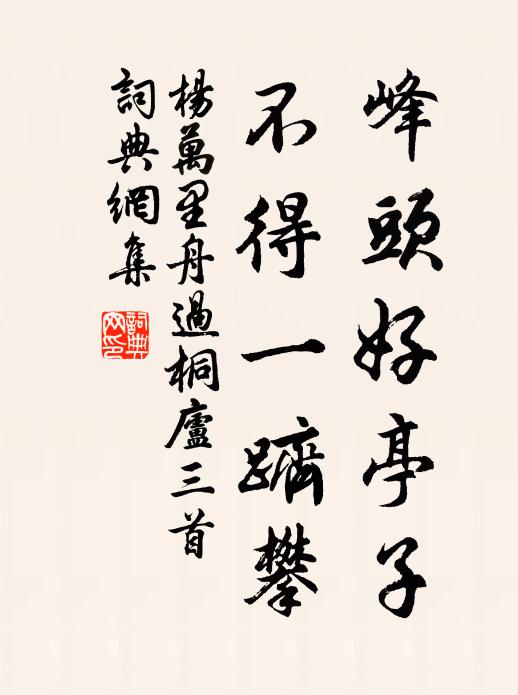 峰頭好亭子
不得一躋攀
楊萬里舟過桐廬三首
詞典網集
詞典網印